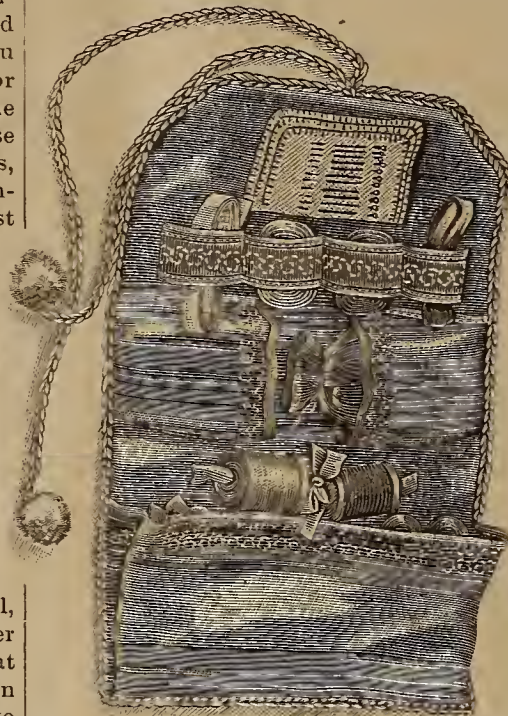 d
u
or
e
se
s,
n-
st
l,
er
at
n